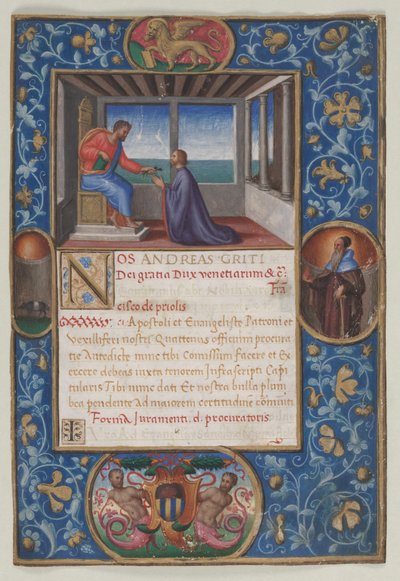 NOS ANDREAS GRITI
Dei gratia Dux venetiarum & c̃.
Frã
cisco de priolis
ci Apostoli et Evangeliste Patroni et
Vexilliferi nostri Quattenus officium procura
tie Antedicte nunc tibi Comissum facere et Ex
ercere debeas iuxta tenorem Infrascripti Capi
tularis Tibi nunc dati Et nostra bulla plum
bea pendente Ad maiorem certitudinẽ cõmuniti
Formã Iuramenti . d. procuratoris.
I